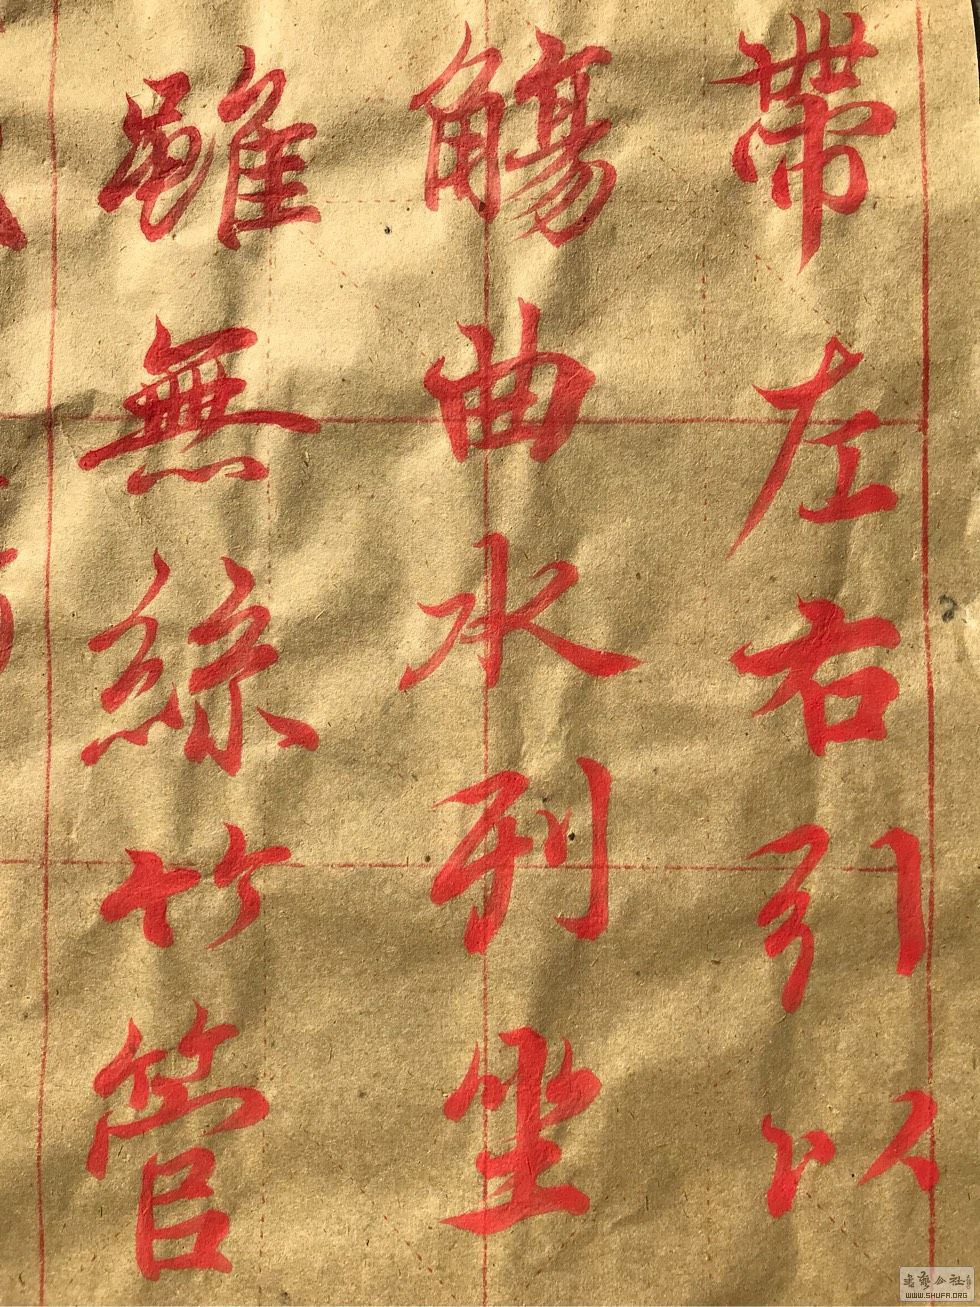 帶左右引以
觴曲水列坐
雖無絲竹管
WWW.SHUFA.ORG